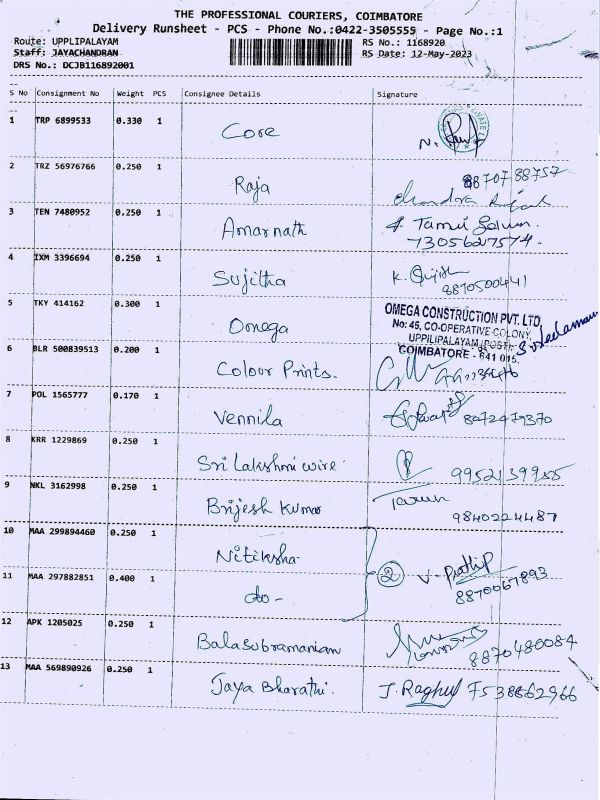 THE PROFESSIONAL COURIERS, COIMBATORE
Delivery Runsheet - PCS - Phone No.:0422-3505555 - Page No.:1
Route: UPPLIPALAYAM RS No.: 1168920
Staff: JAYACHANDRAN RS Date: 12-May-2023
DRS No.: DCJB116892001
S No Consignment No Weight PCS Consignee Details Signature
1 TRP 6899533 0.330 1 Core N.
2 TRZ 56976766 0.250 1 Raja 8870788757
Chandra
3 TEN 7480952 0.250 1 Amarnath A. Tamil Selvum.
7305627574.
4 IXM 3396694 0.250 1 Sujitha K.
8870500441
5 TKY 414162 0.300 1 Omega OMEGA CONSTRUCTION PVT. LTD
No: 46, CO-OPERATIVE COLONY,
UPPILIPALAYAM (POST)
COIMBATORE - 641 015.
6 BLR 500839513 0.200 1 Colour Prints.
7 POL 1565777 0.170 1 Vennila 8072479370
8 KRR 1229869 0.250 1 Sri Lakshmi wire 9952139985
9 NKL 3162998 0.250 1 Brijesh Kumar Tarun
9840224487
10 MAA 299894460 0.250 1 Nitiksha
② V. Prathip
8870067893
11 MAA 297882851 0.400 1 do -
12 APK 1205025 0.250 1 Balasubramaniam 8870480084
13 MAA 569890926 0.250 1 Jaya Bharathi. J. Raghul 7538862966